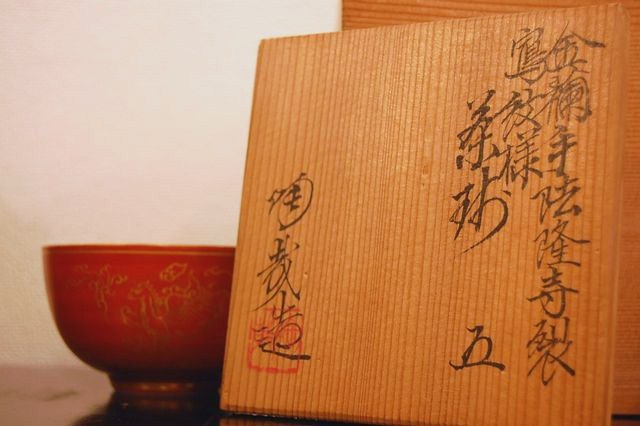 金襴手法隆寺裂
寫紋様
茶碗 五
陶哉造